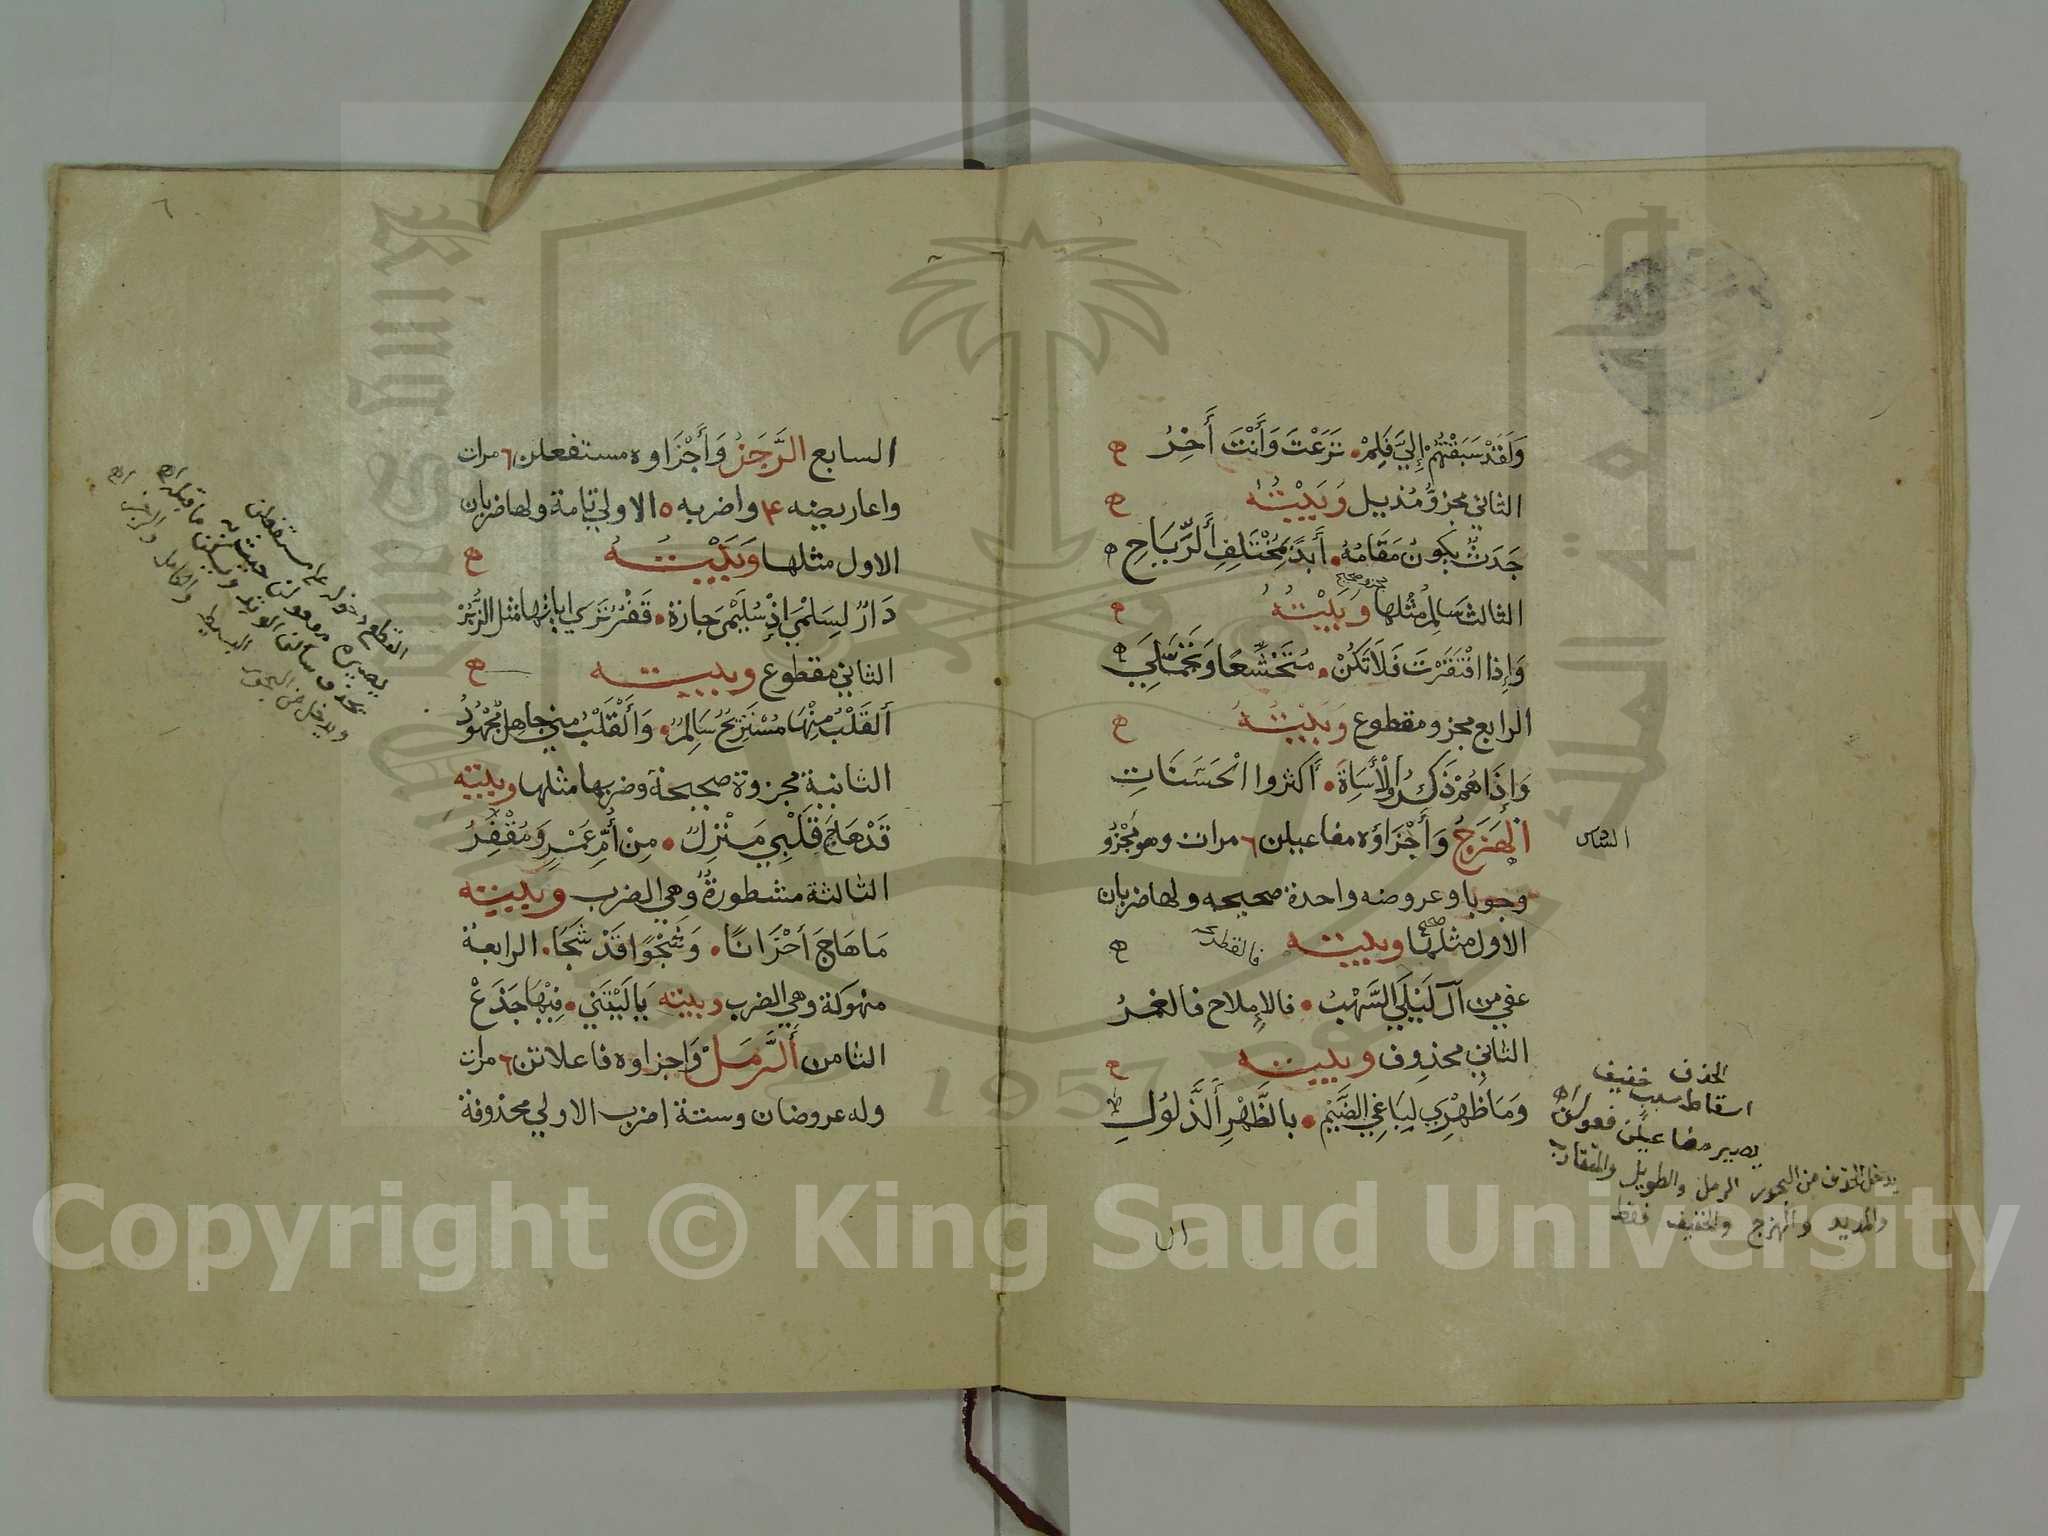 وَلَقَدْ سَبَقْتُهُمْ إِلَيَّ فَلِمْ • نَزَعْتَ وَأَنْتَ أَخِرُ
الثاني مجزؤ مذيل وَبَيْتُهُ
جَدَثٌ يَكُونُ مَقَامُهُ • أَبَدًا بِمُخْتَلِفِ أَلرِّيَاحِ
الثالث سَالِمٌ مِثْلُهَا وَبَيْتُهُ
وَإِذَا افْتَقَرْتَ فَلَا تَكُنْ • مُتَخَشِّعًا وَتَجَمَّلِي
الرابع مجزو مقطوع وَبَيْتُهُ
وَإِذَا هُمْ ذَكَرُوا الْأَسَاةَ • أَكثروا الْحَسَنَاتِ
السادس
الْهَزَجُ وَأَجْزَاؤه مفاعيلن ٦ مرات وهو مَجْزُو
وجوبا وعروضه واحدة صحيحه ولها ضربان
الأول مثلها وبيته
عفى من آل لَيْلَى السَّهْبُ • فالإملاح فالغمرُ
الثاني محذوف وبيته
وَمَا ظَهْرِي لِبَاغِي الضَّيْمِ • بالظَّهْرِ أَلذَّلُولِ
الحذف
اسقاط سبب خفيف
يصير مفاعيلن فعولن اه
يدخل الحذف من البحور الرمل والطويل والمتقارب
والمديد والهزج والخفيف فقط
ال
٦
السابع الرَّجَزُ وَأَجْزَاوه مستفعلن ٦ مرات
واعاريضه ۴ واضربه ٥ الاولي تامة ولها ضربان
الاول مثلها وَبَيْتُهُ
دَارٌ لِسَلْمَي إِذْ سُلَيْمَى جارة • قَفْرٌ تَرَي اياتها مثل الزُّبُرْ
الثاني مقطوع وبيته
أَلقَلْبُ مِنْهَا مُسْتَرِيحٌ سَالِمٌ • وَأَلْقَلْبُ مني جاهل مَجْهُودُ
الثانية مجزوة صحيحة وضربها مثلها وبيته
قَدْ هَاجَ قَلْبِي مَنْزِلٌ • مِنْ أُمِّ عَمْرٍو مُقْفِرُ
الثالثة مشطورة وهي الضرب وبيته
مَا هَاجَ أَحْزَانًا • وَشَجْوًا قَدْ شَجَا • الرابعة
منهوكة وهي الضرب وبيته يَا لَيْتَنِي • فِيْهَا جَذَعْ
الثامن أَلرَّمَلُ وَاجزاوه فاعلاتن ٦ مرات
وله عروضان وستة اضرب الاولي محذوفة
Copyright © King Saud University
1957